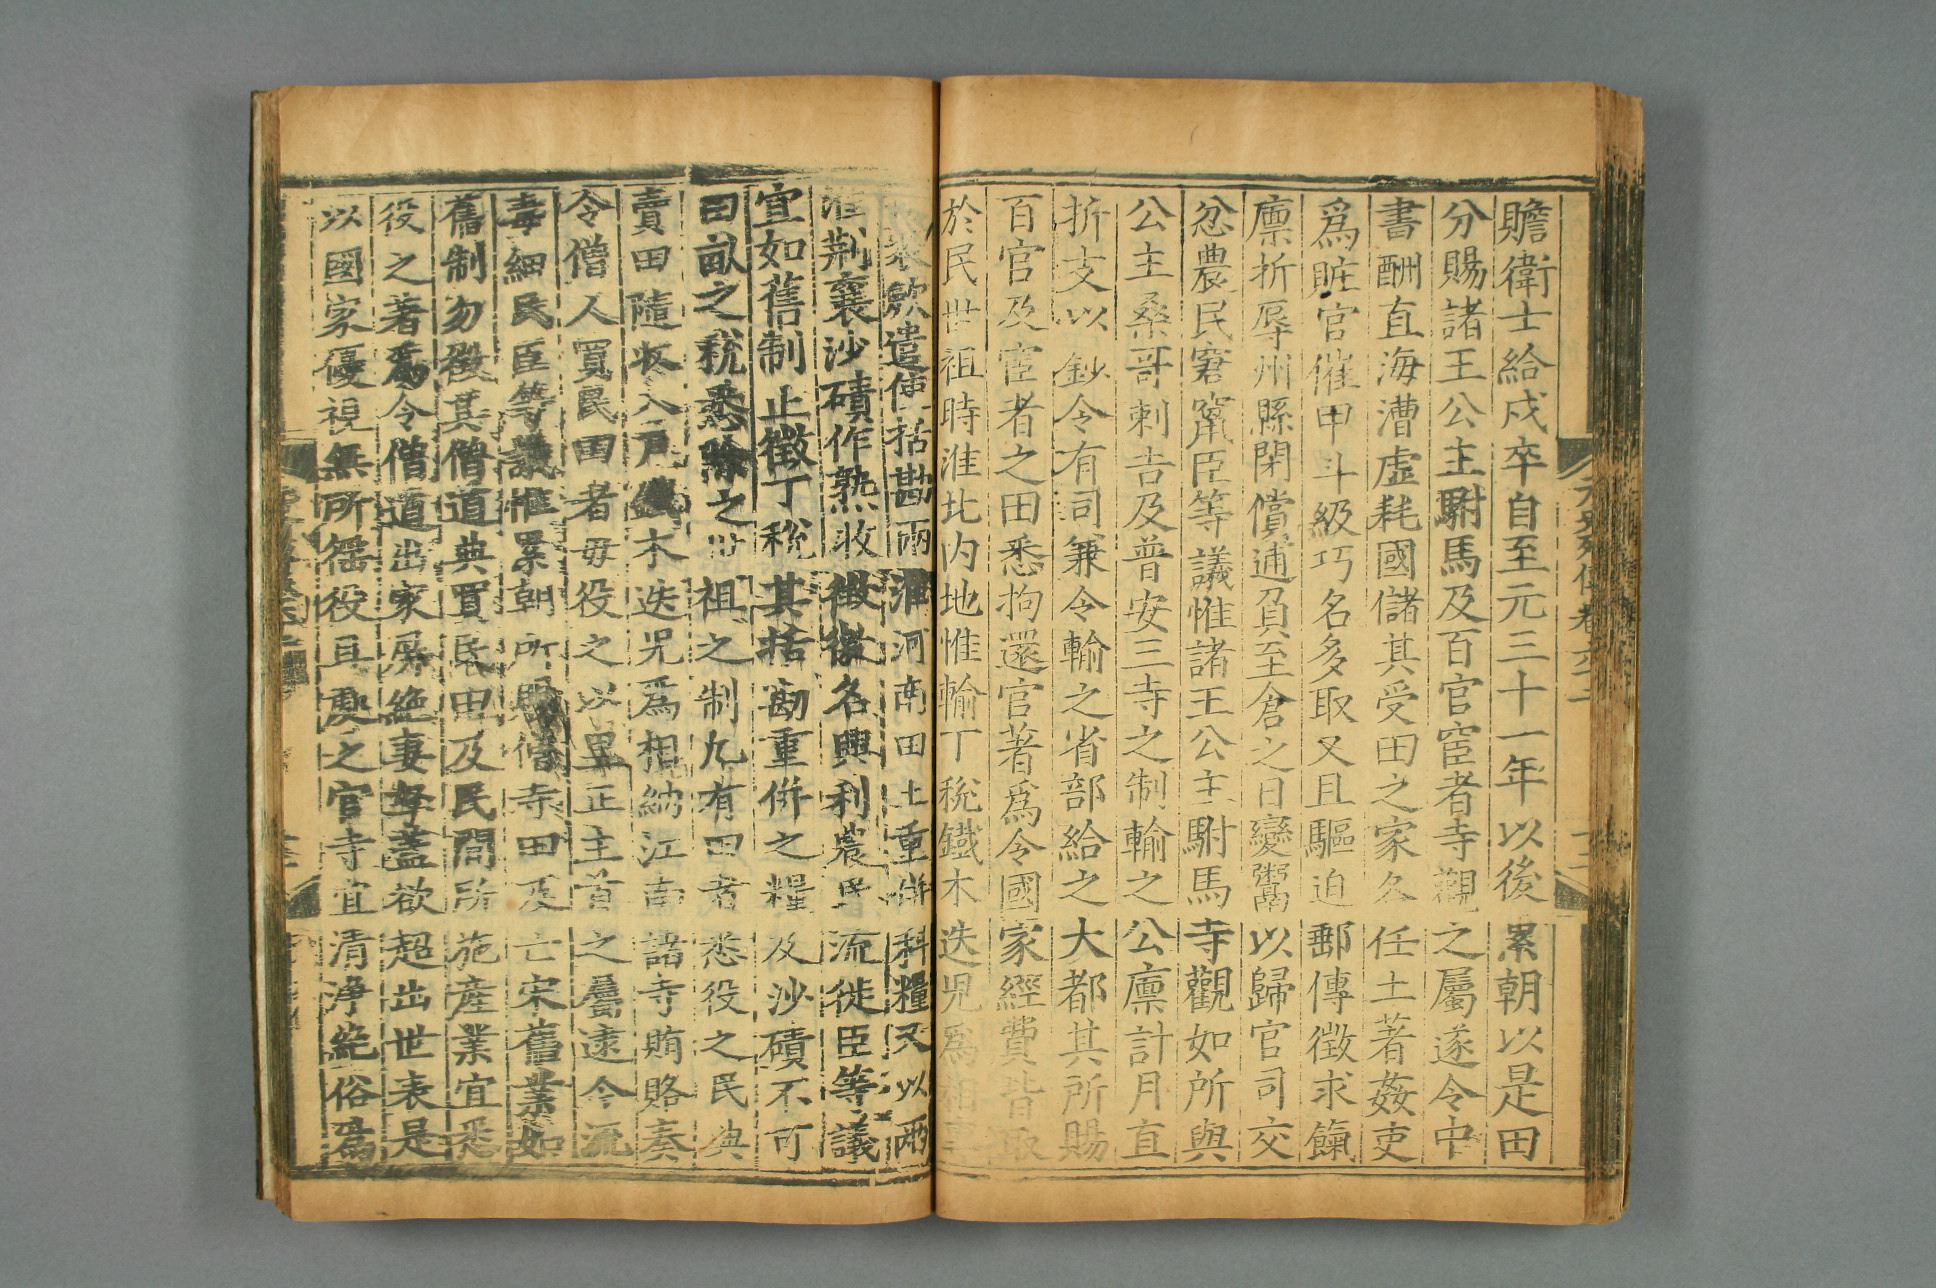 贍衛士給戍卒自至元三十一年以後累朝以是田
分賜諸王公主駙馬及百官宦者寺觀之屬遂令中
書酬直海漕虛耗國儲其受田之家各任土著姦吏
爲賍官催甲斗級巧名多取又且驅迫郵傳徵求餼
廪折辱州縣閉償逋負至倉之日變鬻以歸官司交
忿農民窘竄臣等議惟諸王公主駙馬寺觀如所與
公主桑哥剌吉及普安三寺之制輸之公廪計月直
折支以鈔令有司兼令輸之省部給之大都其所賜
百官及宦者之田悉拘還官著爲令國家經費皆取
於民世祖時淮北内地惟輸丁稅鐵木迭児爲相專
務聚歛遣使括勘兩淮河南田土重併科糧又以兩
淮荆襄沙磧作熟收徴徼名興利農民流徙臣等議
宜如舊制止徵丁稅其括勘重併之糧及沙磧不可
田畝之稅悉除之世祖之制凡有田者悉役之民典
賣田隨收入戸鐵木迭児爲相納江南諸寺賄賂奏
令僧人買民田者毋役之以里正主首之屬逮今流
毒細民臣等議惟累朝所賜僧寺田及亡宋舊業如
舊制勿徵其僧道典買民田及民間所施產業宜悉
役之著爲令僧道出家屏絶妻孥蓋欲超出世表是
以國家優視無所徭役且處之官寺宜清淨絶俗爲
元史列傳卷六十二
十二